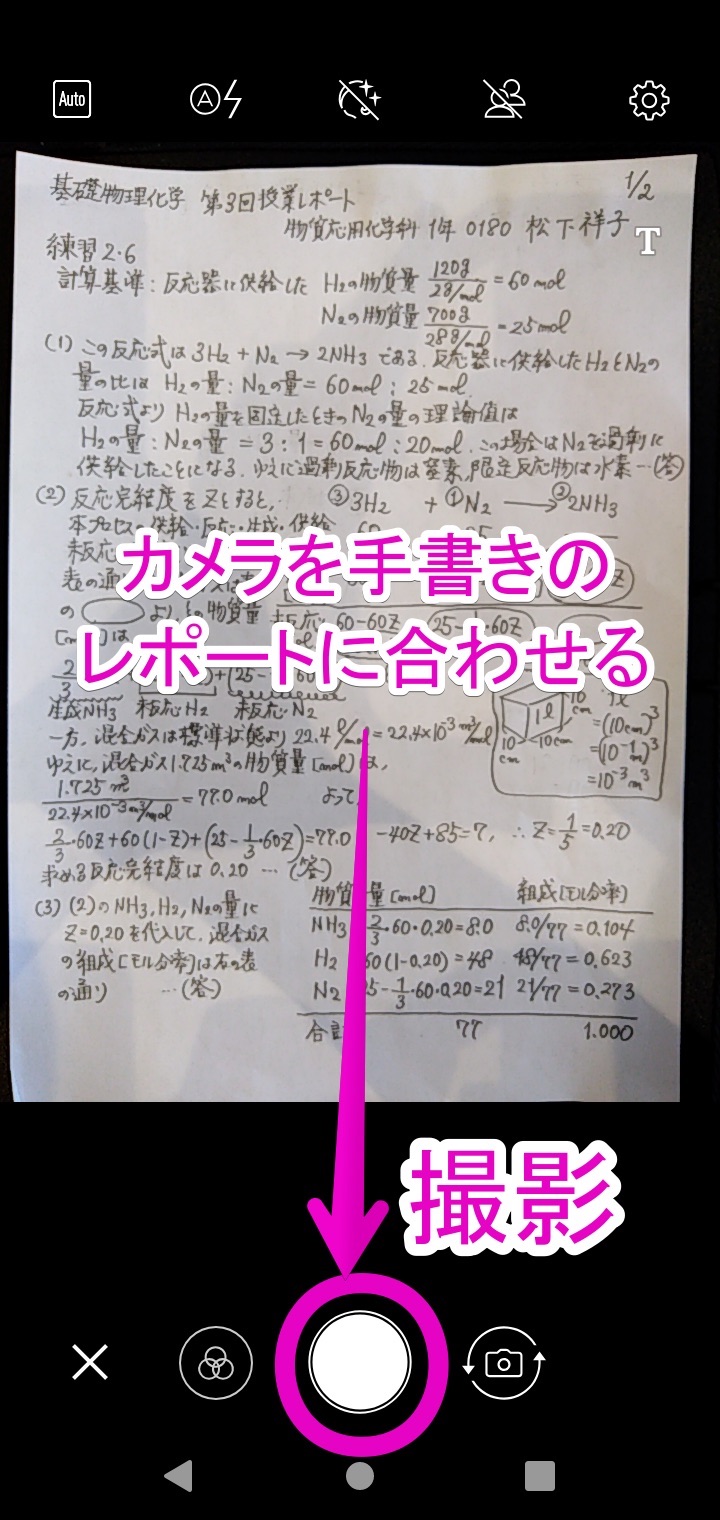 Auto
A
基礎物理化学 第3回授業レポート 1/2
物質応用化学科 1年 0180 松下祥子
T
練習2.6
計算基準:反応器に供給した H₂の物質量 120g/2g/mol = 60mol
N₂の物質量 700g/28g/mol = 25mol
(1) この反応式は 3H₂ + N₂ → 2NH₃ である. 反応器に供給したH₂とN₂の
量の比は H₂の量:N₂の量 = 60mol : 25mol.
反応式より H₂の量を固定したときの N₂の量の理論値は
H₂の量:N₂の量 = 3:1 = 60mol : 20mol. この場合は N₂を過剰に
供給したことになる. ゆえに過剰反応物は窒素, 限定反応物は水素…(答)
(2) 反応完結度を Z とすると, ③3H₂ + ①N₂ → ②2NH₃
本プロセスの供給・反応・生成・供給
未反応
カメラを手書きの
表の通
の より, の物質量 60-60Z 25-
[mol]は
レポートに合わせる
2/3
生成NH₃ 未反応H₂ 未反応N₂
1ℓ 10cm
10cm 10cm
=(10cm)³
=(10⁻¹m)³
=10⁻³m³
一方, 混合ガスは標準状態より 22.4 ℓ/mol = 22.4×10⁻³ m³/mol
ゆえに, 混合ガス1.725m³の物質量[mol]は,
1.725m³/22.4×10⁻³m³/mol = 77.0mol よって,
2/3・60Z+60(1-Z)+(25-1/3・60Z)=77.0 -40Z+85=77, ∴ Z=1/5=0.20
求める反応完結度は 0.20 … (答)
(3) (2)のNH₃, H₂, N₂の量に
Z=0.20を代入して, 混合ガス
の組成[モル分率]は右の表
の通り …(答)
物質 量[mol] 組成[モル分率]
NH₃ 2/3・60・0.20=8.0 8.0/77=0.104
H₂ 60(1-0.20)=48 48/77=0.623
N₂ 25-1/3・60・0.20=21 21/77=0.273
合計 77 1.000
撮影